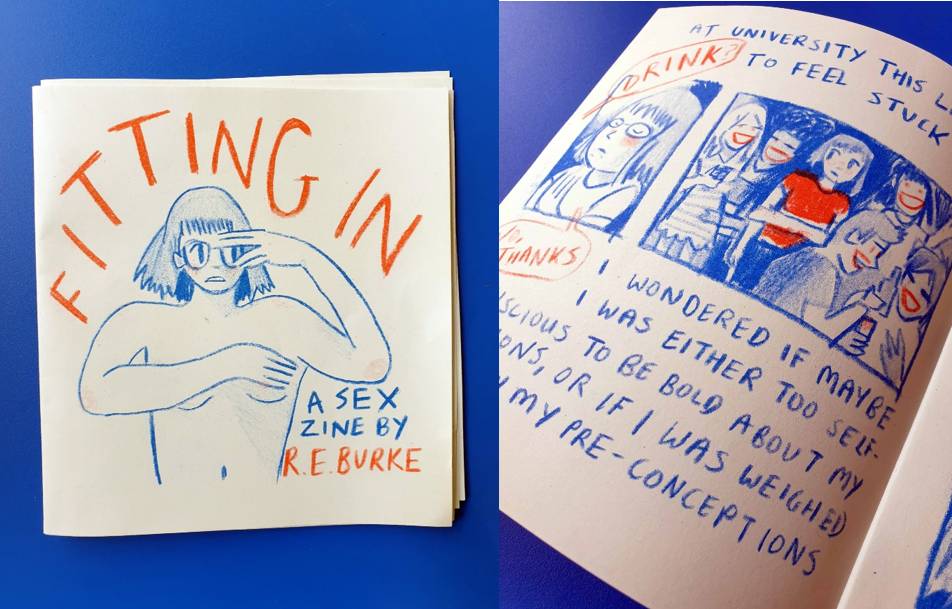 FITTING IN
A SEX
ZINE BY
R.E.BURKE
AT UNIVERSITY THIS
TO FEEL STUCK
DRINK?
THANKS
I WONDERED IF MAYBE
I WAS EITHER TOO SELF-
TO BE BOLD ABOUT MY
OR IF I WAS WEIGHED
MY PRE-CONCEPTIONS